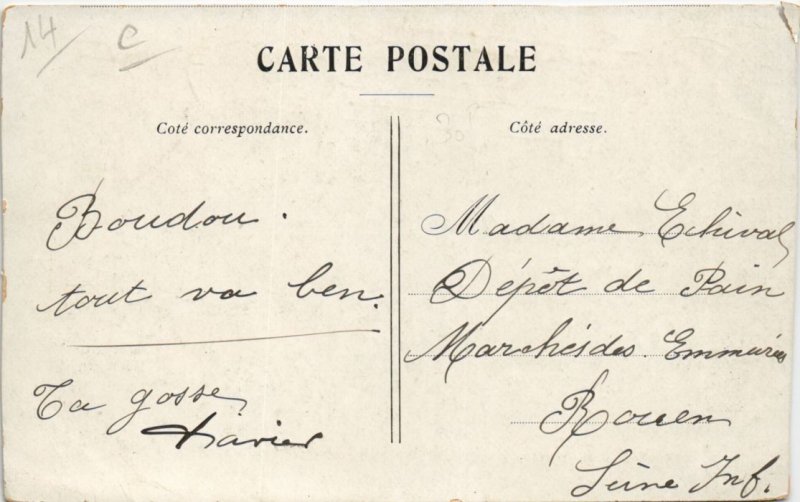 14 C
CARTE POSTALE
Coté correspondance.
Côté adresse.
Boudou.
tout va ben.
Ta gosse
Xavier
Madame Echival
Dépôt de Pain
Marché des Emmurées
Rouen
Seine Inf.